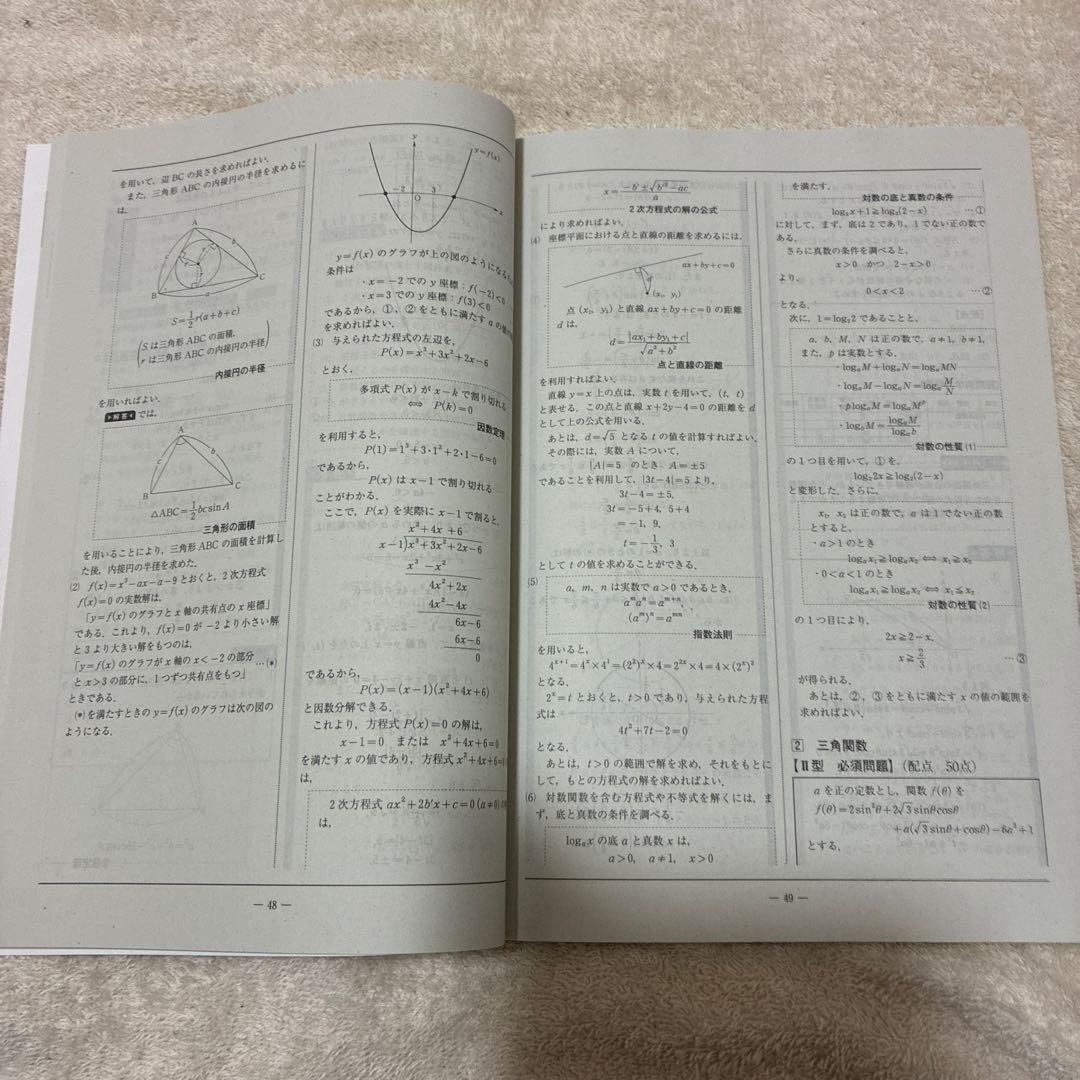 を用いて，辺BCの長さを求めればよい．
また，三角形ABCの内接円の半径を求めるに
は，
A
c
b
r
B
a
C
S=1/2 r(a+b+c)
(Sは三角形ABCの面積，
rは三角形ABCの内接円の半径)
内接円の半径
を用いればよい．
▶解答◀では，
A
c
b
B
C
△ABC=1/2 bcsinA
三角形の面積
を用いることにより，三角形ABCの面積を計算し
た後，内接円の半径を求めた．
(2) f(x)=x²-ax-a-9とおくと，2次方程式
f(x)=0の実数解は，
「y=f(x)のグラフとx軸の共有点のx座標」
である．これより，f(x)=0が-2より小さい解
と3より大きい解をもつのは，
「y=f(x)のグラフがx軸のx<-2の部分
とx>3の部分に，1つずつ共有点をもつ」 …(*)
ときである．
(*)を満たすときのy=f(x)のグラフは次の図の
ようになる．
y
y=f(x)
-2
O
3
x
y=f(x)のグラフが上の図のようになる
条件は
・x=-2でのy座標：f(-2)<0
・x=3でのy座標：f(3)<0
であるから，①，②をともに満たすaの値の
を求めればよい．
(3) 与えられた方程式の左辺を，
P(x)=x³+3x²+2x-6
とおく．
多項式P(x)がx-kで割り切れる
⇔ P(k)=0
因数定理
を利用すると，
P(1)=1³+3・1²+2・1-6=0
であるから，
P(x)はx-1で割り切れる
ことがわかる．
ここで，P(x)を実際にx-1で割ると，
x²+4x+6
x-1)x³+3x²+2x-6
x³-x²
4x²+2x
4x²-4x
6x-6
6x-6
0
であるから，
P(x)=(x-1)(x²+4x+6)
と因数分解できる．
これより，方程式P(x)=0の解は，
x-1=0 または x²+4x+6=0
を満たすxの値であり，方程式x²+4x+6=0
は，
2次方程式ax²+2b'x+c=0(a≠0)の
は，
— 48 —
x=(-b'±√(b'²-ac))/a
2次方程式の解の公式
により求めればよい．
(4) 座標平面における点と直線の距離を求めるには，
ax+by+c=0
d
(x₁, y₁)
点(x₁, y₁)と直線ax+by+c=0の距離
dは，
d=|ax₁+by₁+c|/√(a²+b²)
点と直線の距離
を利用すればよい．
直線y=x上の点は，実数tを用いて，(t, t)
と表せる．この点と直線x+2y-4=0の距離をd
として上の公式を用いる．
あとは，d=√5となるtの値を計算すればよい．
その際には，実数Aについて，
|A|=5のとき A=±5
であることを利用して，|3t-4|=5より，
3t-4=±5，
3t=-5+4, 5+4
=-1, 9,
t=-1/3, 3
としてtの値を求めることができる．
(5)
a，m，nは実数でa>0であるとき，
aᵐaⁿ=aᵐ⁺ⁿ，
(aᵐ)ⁿ=aᵐⁿ
指数法則
を用いると，
4ˣ⁺¹=4ˣ×4¹=(2²)ˣ×4=2²ˣ×4=4×(2ˣ)²
となる．
2ˣ=tとおくと，t>0であり，与えられた方程
式は
4t²+7t-2=0
となる．
あとは，t>0の範囲で解を求め，それをもとに
して，もとの方程式の解を求めればよい．
(6) 対数関数を含む方程式や不等式を解くには，ま
ず，底と真数の条件を調べる．
logₐxの底aと真数xは，
a>0, a≠1, x>0
を満たす．
対数の底と真数の条件
log₂x+1≧log₂(2-x) …①
に対して，まず，底は2であり，1でない正の数で
ある．
さらに真数の条件を調べると，
x>0 かつ 2-x>0
より，
0<x<2 …②
となる．
次に，1=log₂2であることと，
a，b，M，Nは正の数で，a≠1，b≠1，
また，pは実数とする．
・logₐM+logₐN=logₐMN
・logₐM-logₐN=logₐ M/N
・plogₐM=logₐMᵖ
・log_bM=logₐM/logₐb
対数の性質(1)
の1つ目を用いて，①を，
log₂2x≧log₂(2-x)
と変形した．さらに，
x₁，x₂は正の数で，aは1でない正の数
とすると，
・a>1のとき
logₐx₁≧logₐx₂⇔x₁≧x₂
・0<a<1のとき
logₐx₁≧logₐx₂⇔x₁≦x₂
対数の性質(2)
の1つ目により，
2x≧2-x，
x≧2/3 …③
が得られる．
あとは，②，③をともに満たすxの値の範囲を
求めればよい．
2 三角関数
【Ⅱ型 必須問題】(配点 50点)
aを正の定数とし，関数f(θ)を
f(θ)=2sin²θ+2√3sinθcosθ
+a(√3sinθ+cosθ)-6a³+1
とする．
— 49 —